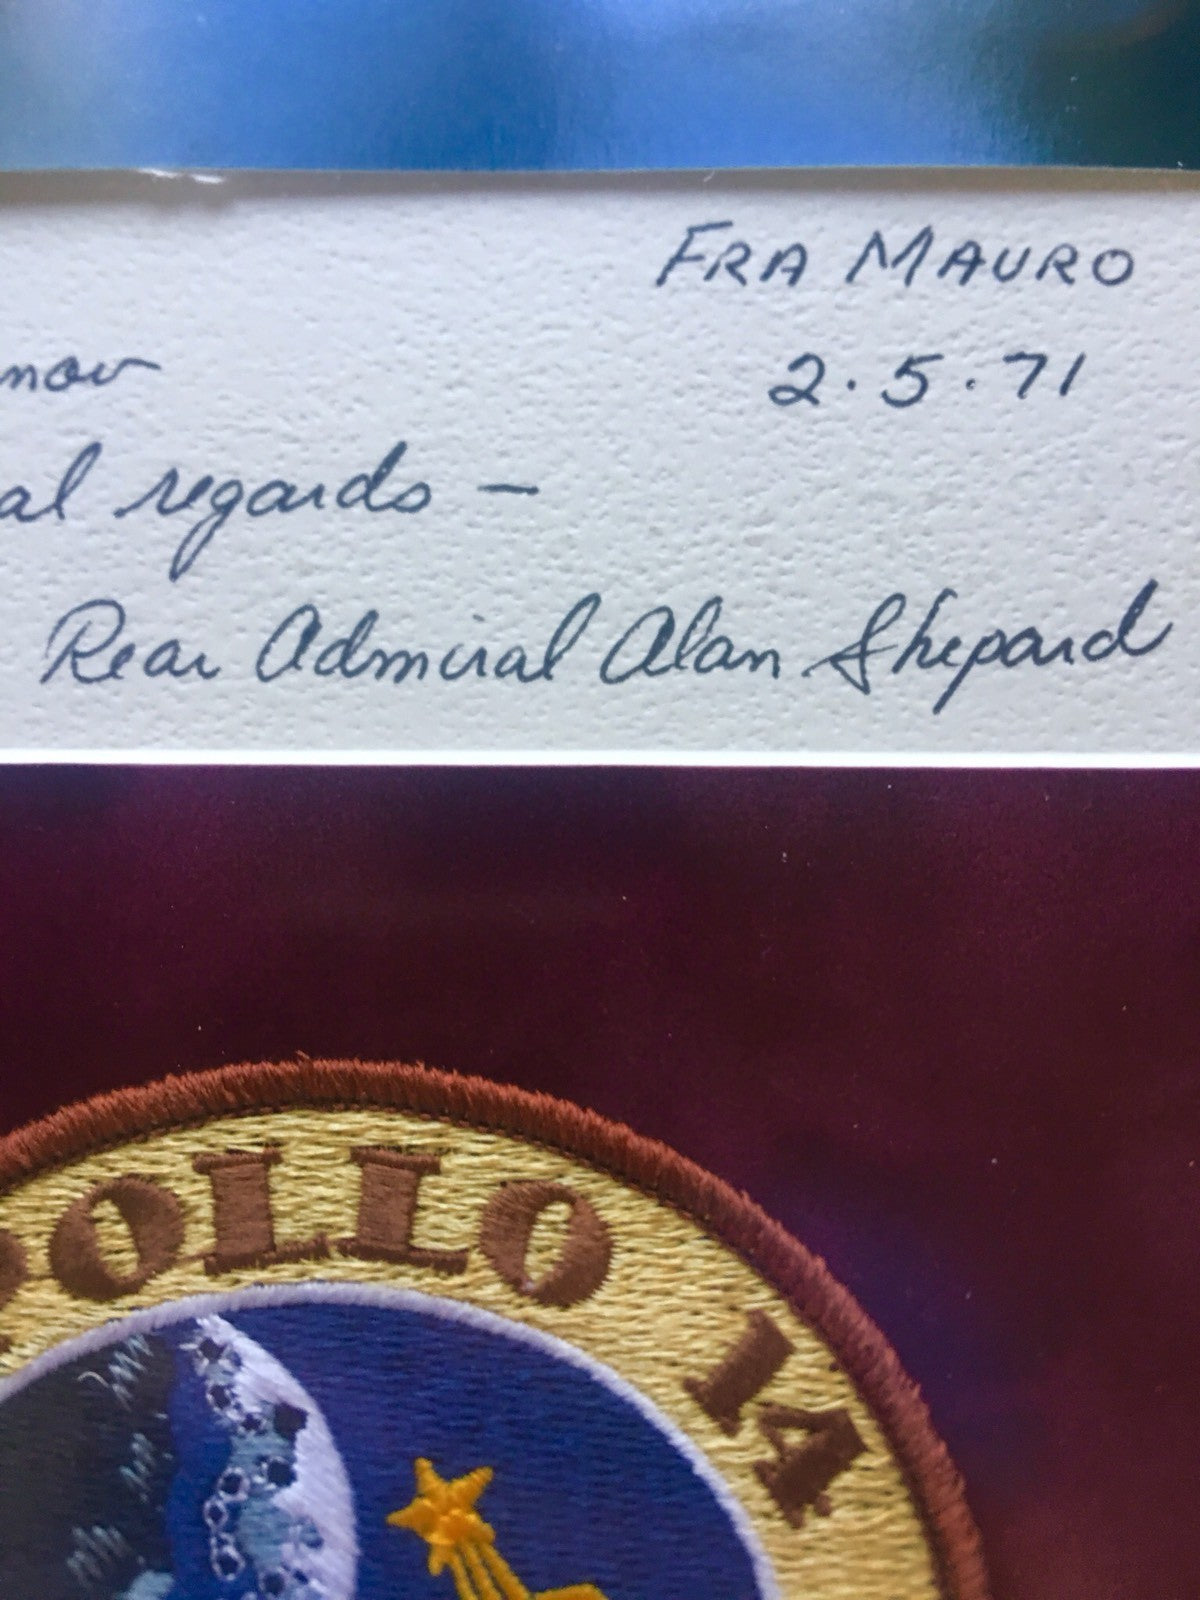 FRA MAURO
2.5.71
regards —
Rear Admiral Alan Shepard
APOLLO 14